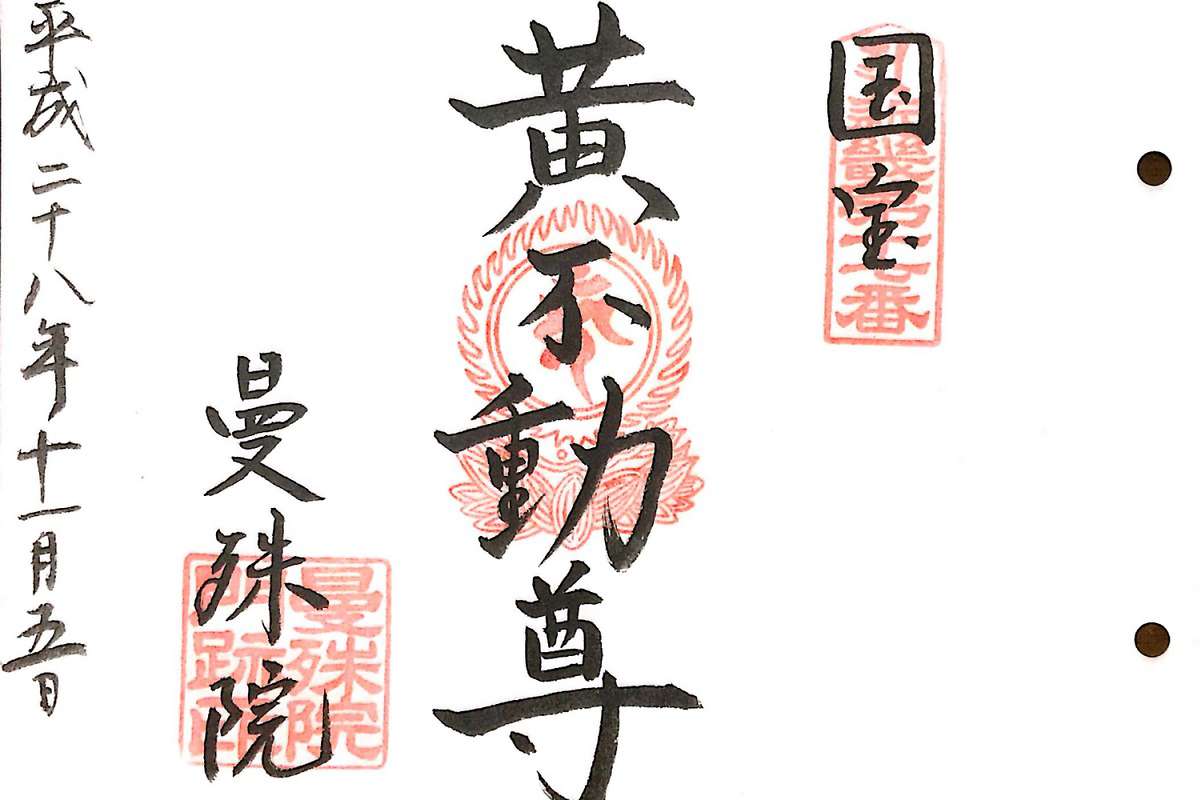 国宝
黄不動尊
曼殊院
平成二十八年十一月五日
近畿第十七番
曼殊院
門跡印